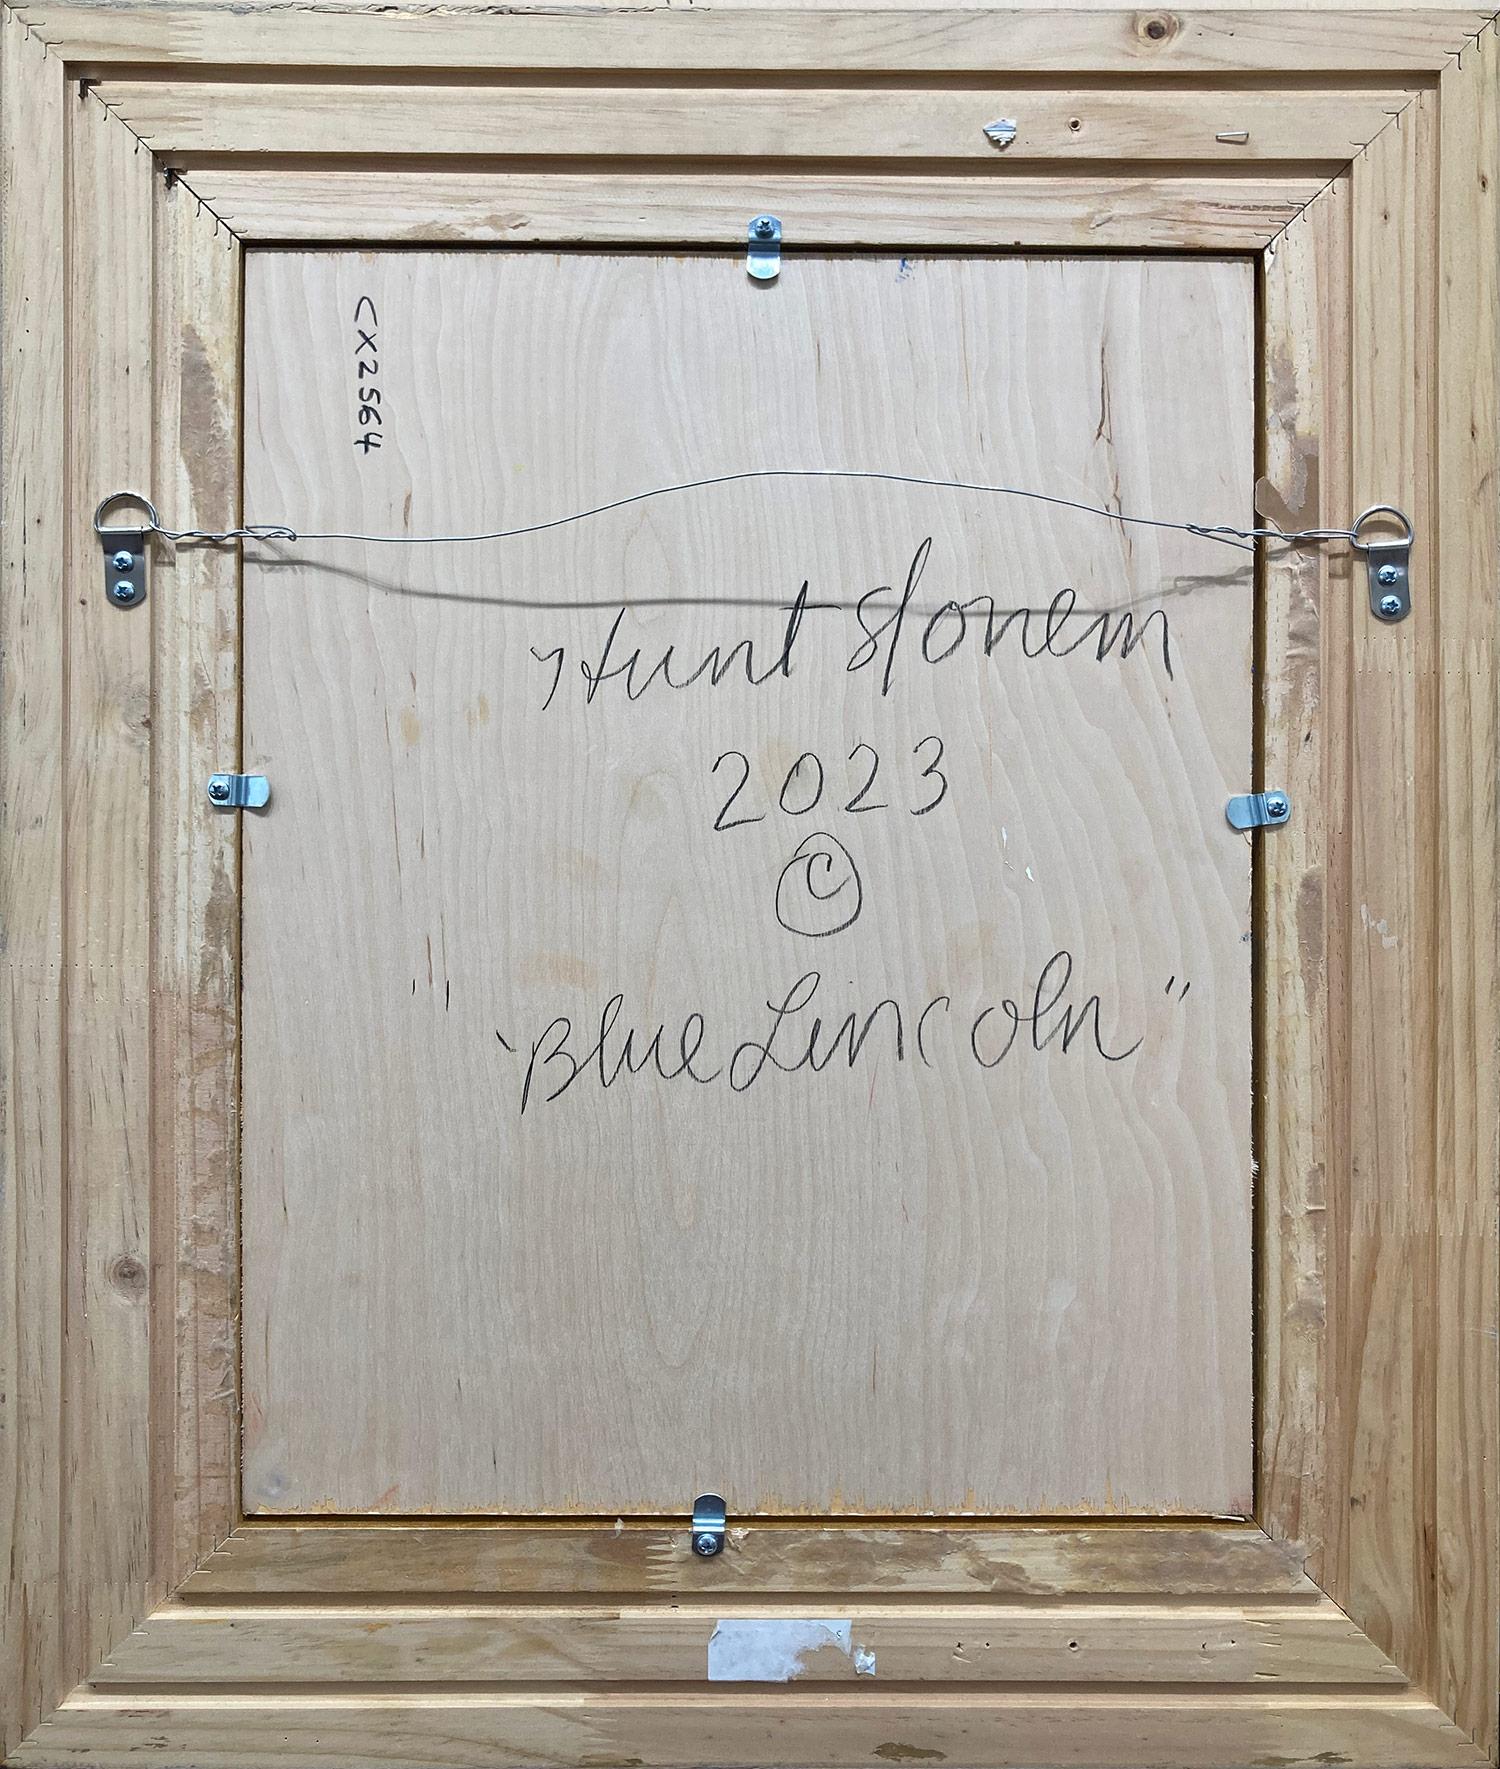 CX2564
Hunt Slonem
2023
©
"Blue Lincoln"